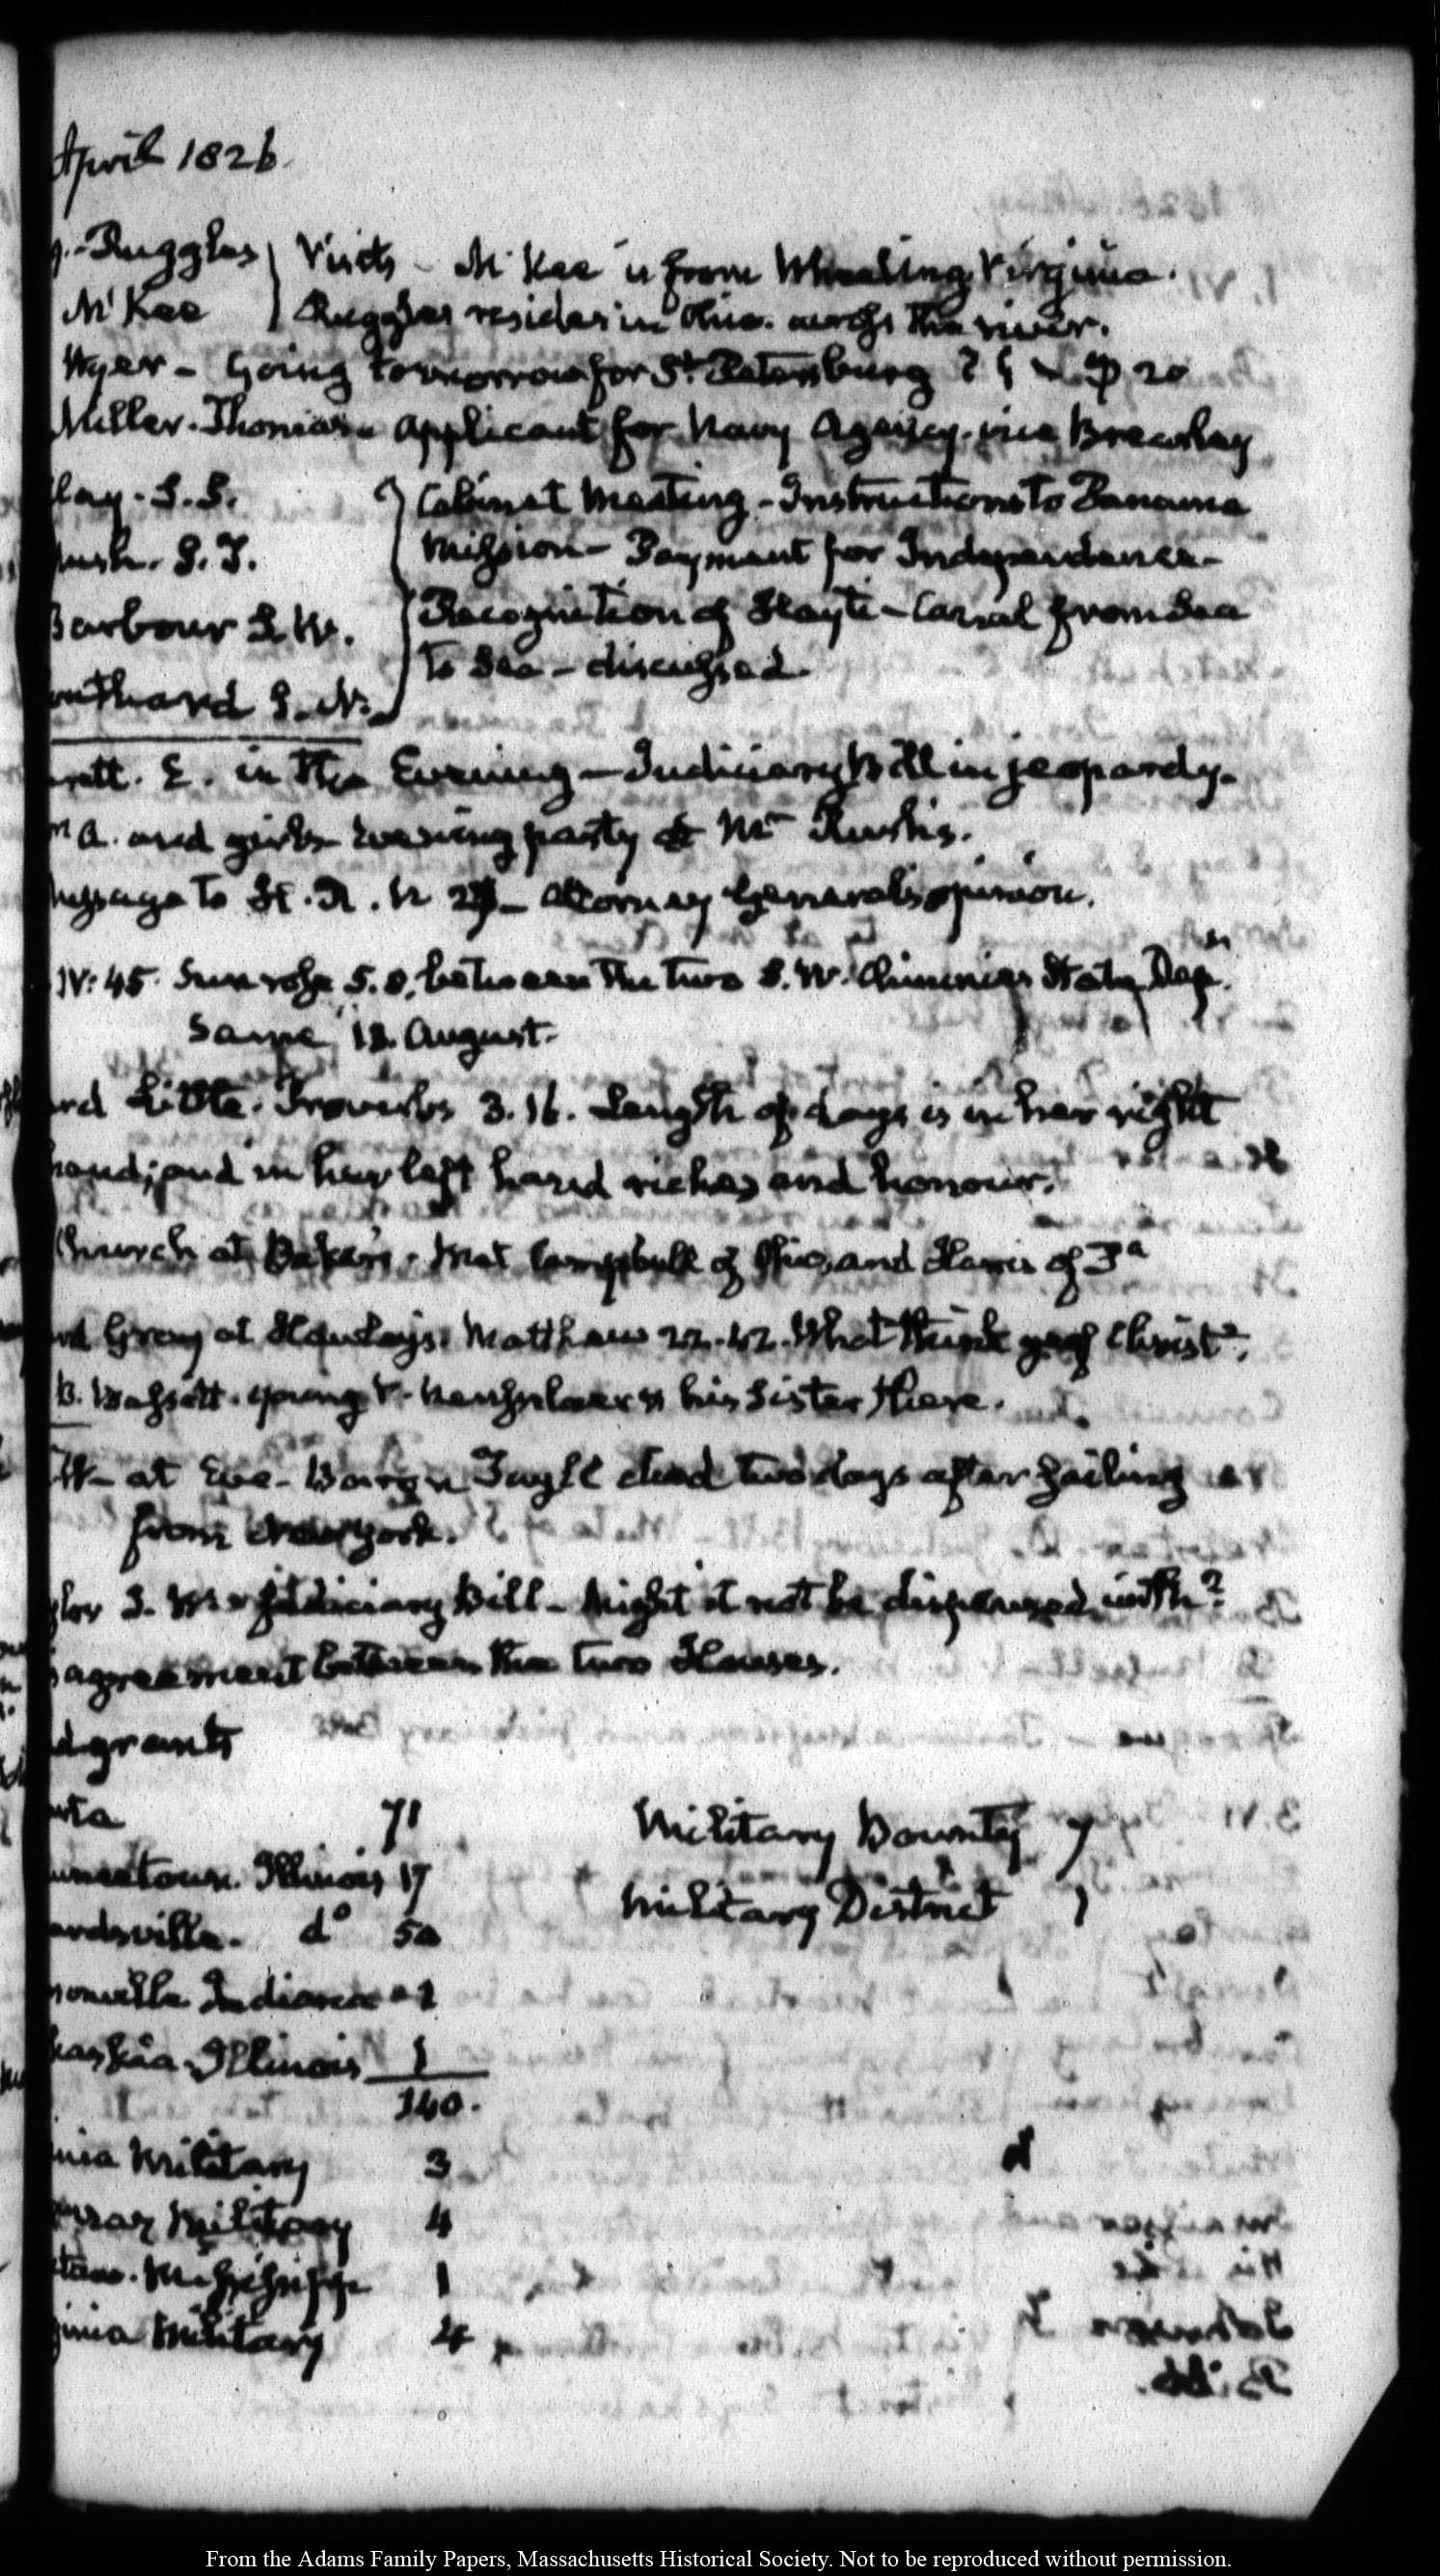 April 1826.
Ruggles } Visits - McKee is from Wheeling Virginia.
McKee } Ruggles resides in Ohio. across the river.
Wyer - Going tomorrow for St. Petersburg 20
Miller. Thomas - applicant for Navy Agency. vice
lay. S.S. } Cabinet Meeting - Instructions to Panama
ush. S.T. Mission - Payment for Independence -
Barbour S.W. Recognition of Hayti - Canal from Sea
outhard S.N. to Sea - discussed.
rett. E. in the Evening - Judiciary Bill in jeopardy.
A. and girls evening party at Mr Rush's.
Message to H.R. Attorney General's opinion.
IV: 45 Sun rose 5. 8. between the two S.W. Chimnies State Dept.
same 12. August.
rd Little. Proverbs 3. 16. Length of days is in her right
hand; and in her left hand riches and honour.
Church at Baker's. Met Campbell of Ohio, and Harris of
rd Gray at Hawley's. Matthew 22. 42. What think ye of Christ?
B. Bassett. young V. Rensselaer & his Sister there.
at Eve - Baron Tuyll died two days after sailing
from New York.
lor J. W. - Judiciary Bill - Might it not be dispensed with?
agreement between the two Houses.
d grants
71 Military Bounty 7
town. Illinois 17 Military District 1
ardsville. do 50
Indiana 1
kaskia - Illinois 1
140.
nia Military 3
Military 4
Mississippi 1
ginia Military 4
From the Adams Family Papers, Massachusetts Historical Society. Not to be reproduced without permission.